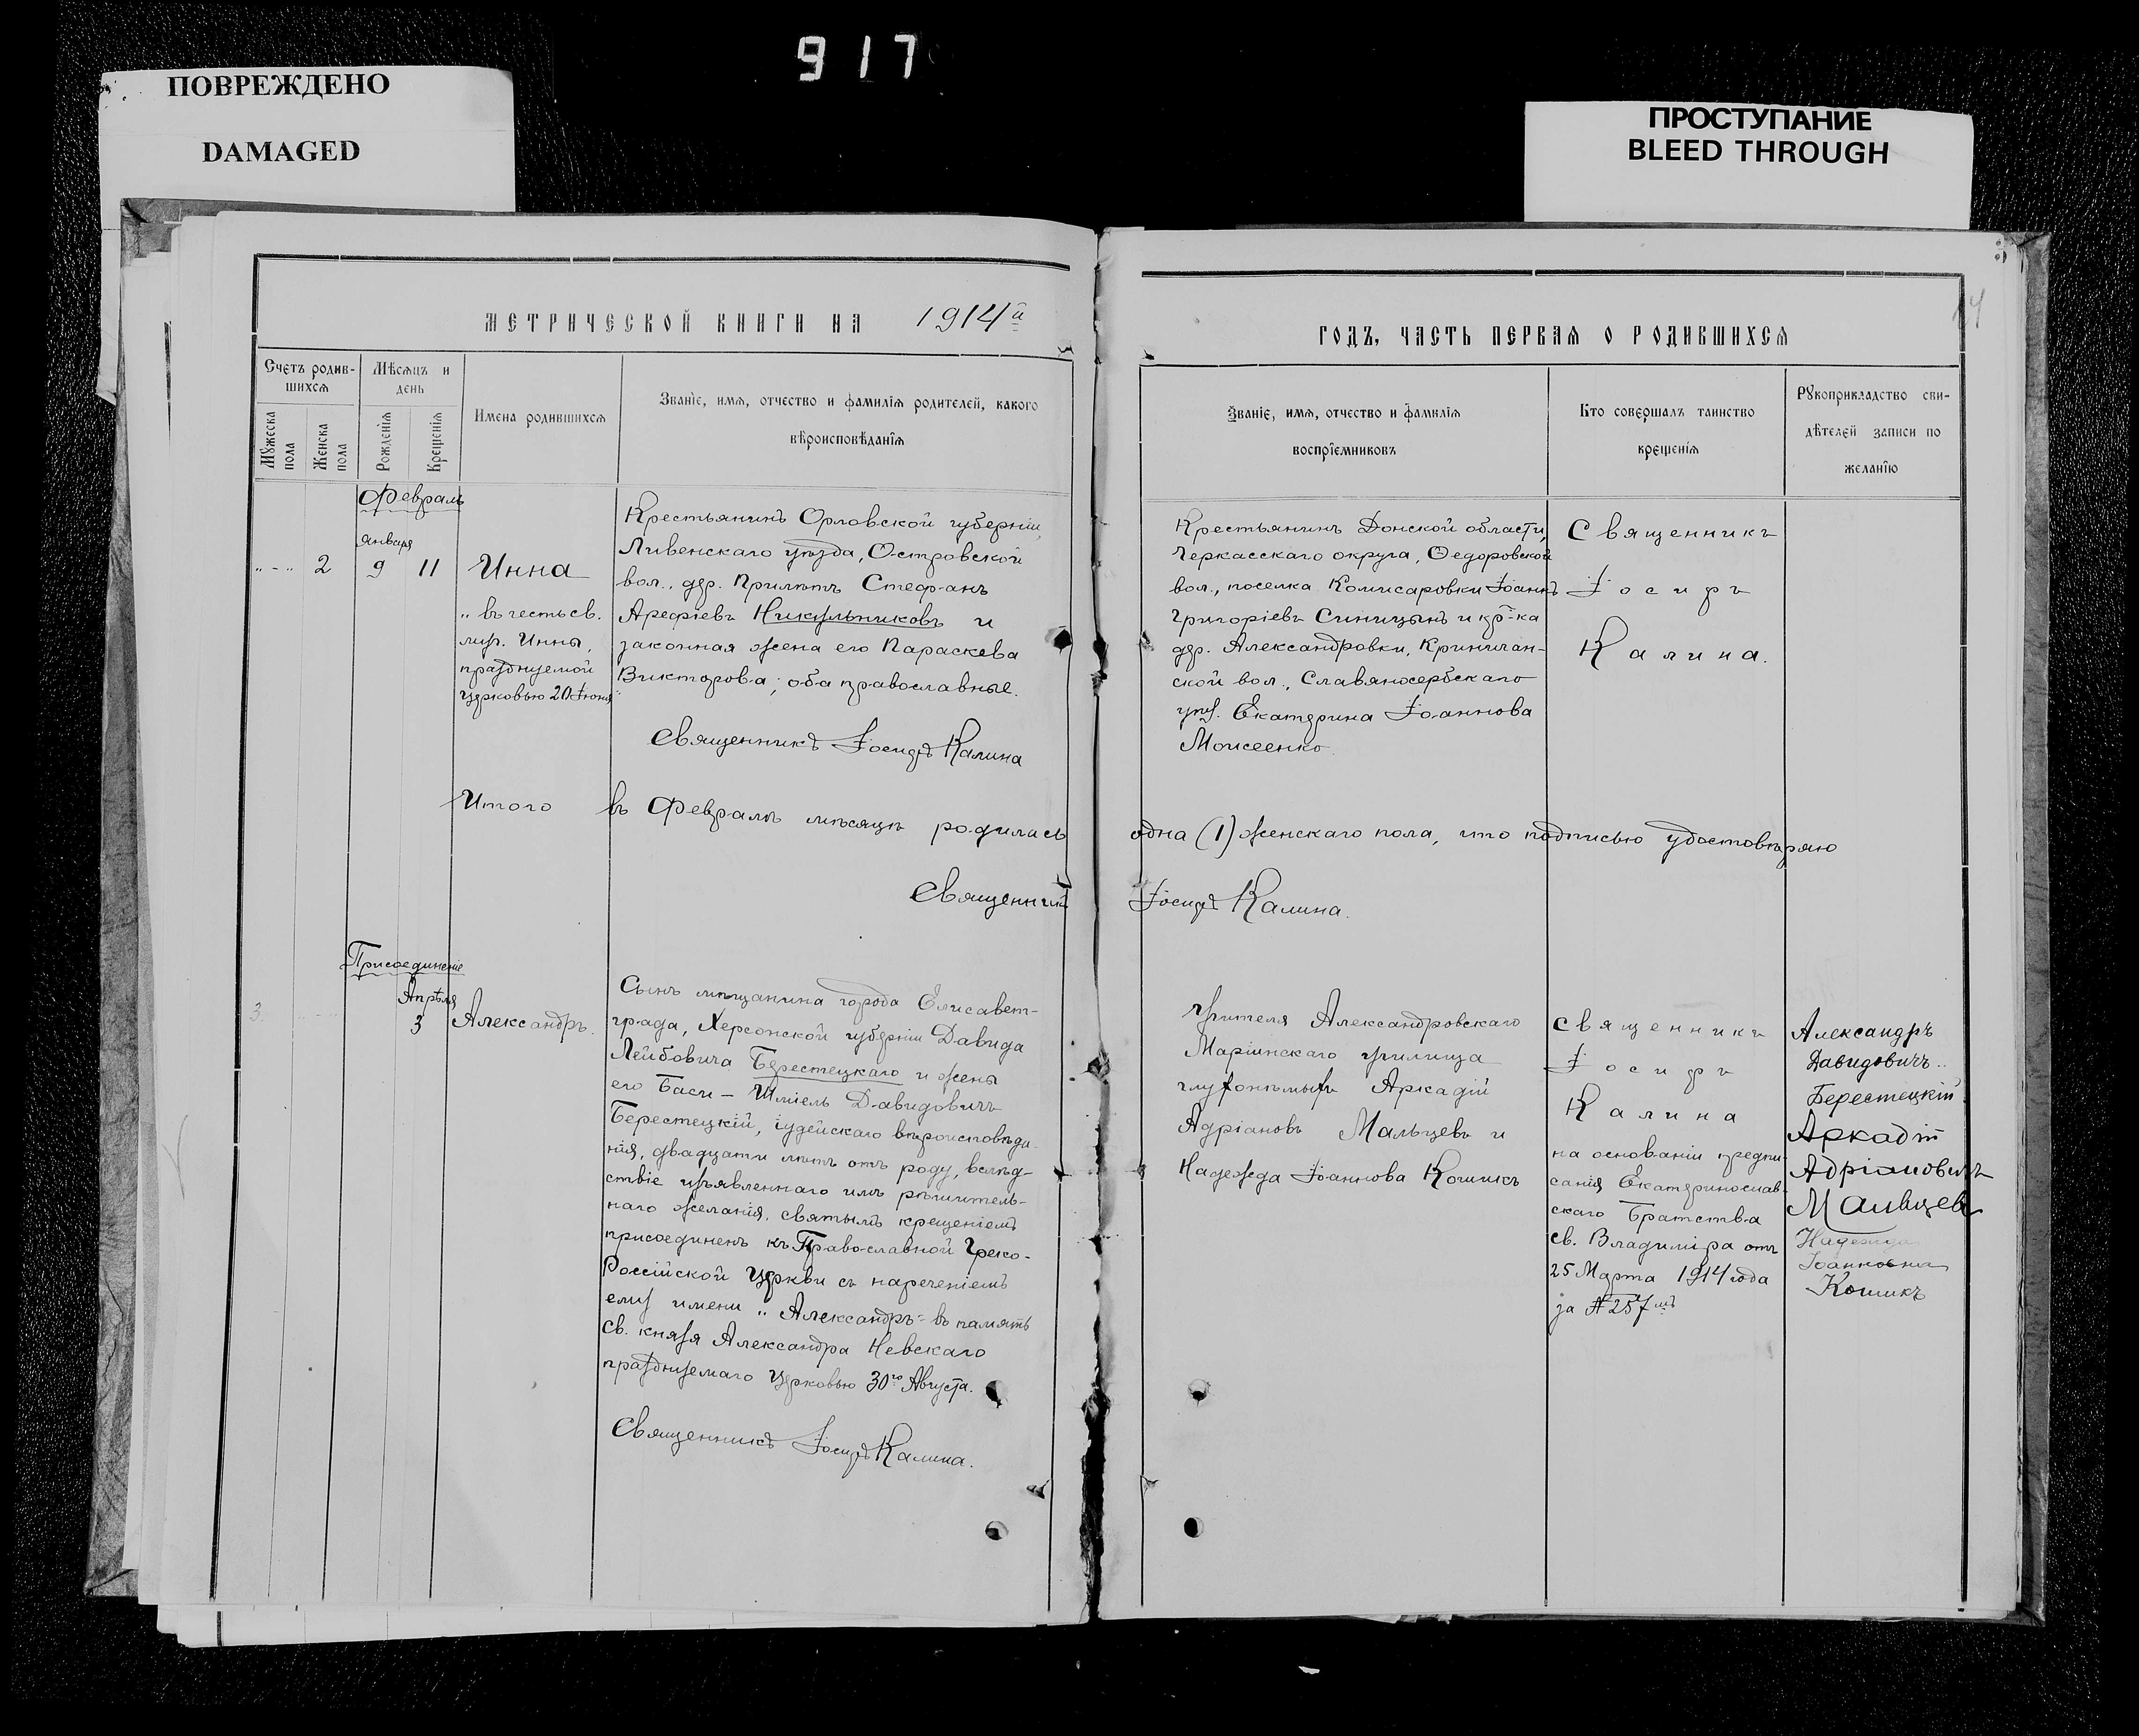 917
ПОВРЕЖДЕНО
DAMAGED
ПРОСТУПАНИЕ
BLEED THROUGH
МЕТРИЧЕСКОЙ КНИГИ НА 1914й
Счетъ родив-
шихся
Мѣсяцъ и
день
Мужеска
пола
Женска
пола
Рожденія
Крещенія
Имена родившихся
Званіе, имя, отчество и фамилія родителей, какого
вѣроисповѣданія
Февраль
Января
„ - „ 2 9 11 Инна
„ въ честь св.
муч. Инны,
празднуемой
церковью 20 Іюня"
Крестьянинъ Орловской губерніи,
Ливенскаго уѣзда, Островской
вол., дер. Прилѣпъ Стефанъ
Арефіевъ Никульниковъ и
законная жена его Параскева
Викторова; оба православные.
Священникъ Іосифъ Калина
Итого въ Февралѣ мѣсяцѣ родилась
Священникъ
Присоединеніе
Апрѣля
3. 3 Александръ.
Сынъ мѣщанина города Елисавет-
града, Херсонской губерніи Давида
Лейбовича Берестецкаго и жены
его Баси - Шміель Давидовичъ
Берестецкій, іудейскаго вѣроисповѣда-
нія, двадцати лѣтъ отъ роду, вслѣд-
ствіе изъявленнаго имъ рѣшитель-
наго желанія, святымъ крещеніемъ
присоединенъ къ Православной Греко-
Россійской Церкви съ нареченіемъ
ему имени „Александръ" въ память
св. князя Александра Невскаго
празднуемаго Церковью 30го Августа.
Священникъ Іосифъ Калина.
ГОДЪ, ЧАСТЬ ПЕРВАЯ О РОДИВШИХСЯ
Званіе, имя, отчество и фамилія
воспріемниковъ
Кто совершалъ таинство
крещенія
Рукоприкладство сви-
дѣтелей записи по
желанію
Крестьянинъ Донской области,
Черкасскаго округа, Ѳедоровской
вол., поселка Комисаровки Іоаннъ
Григоріевъ Синицынъ и кр-ка
дер. Александровки, Криничан-
ской вол., Славяносербскаго
уѣз. Екатерина Іоаннова
Моисеенко.
Священникъ
Іосифъ
Калина.
одна (1) женскаго пола, что подписью удостовѣряю
Іосифъ Калина.
Учителя Александровскаго
Маріинскаго училища
глухонѣмыхъ Аркадій
Адріановъ Мальцевъ и
Надежда Іоаннова Кошикъ
священникъ
Іосифъ
Калина
на основаніи предпи-
санія Екатеринослав-
скаго Братства
св. Владиміра отъ
25 Марта 1914 года
за №257мъ
Александръ
Давидовичъ
Берестецкій
Аркадій
Адріановичъ
Мальцевъ
Надежда
Іоанновна
Кошикъ